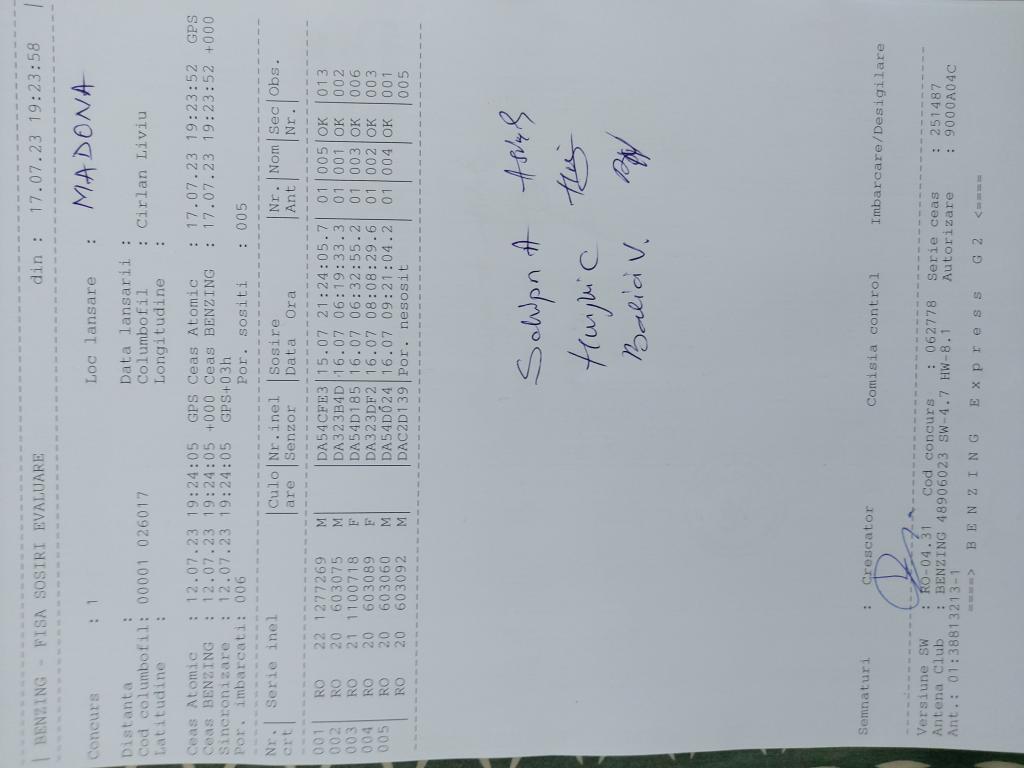 | BENZING - FISA SOSIRI EVALUARE din : 17.07.23 19:23:58 |
Concurs : 1 Loc lansare : MADONA
Distanta : Data lansarii :
Cod columbofil: 00001 026017 Columbofil : Cirlan Liviu
Latitudine : Longitudine :
Ceas Atomic : 12.07.23 19:24:05 GPS Ceas Atomic : 17.07.23 19:23:52 GPS
Ceas BENZING : 12.07.23 19:24:05 +000 Ceas BENZING : 17.07.23 19:23:52 +000
Sincronizare : 12.07.23 19:24:05 GPS+03h
Por. imbarcati: 006 Por. sositi : 005
Nr. | Serie inel |Culo|Nr.inel |Sosire |Nr. |Nom|Sec|Obs.
crt | |are |Senzor |Data Ora |Ant | |Nr.|
001 RO 22 1277269 M |DA54CFE3|15.07 21:24:05.7| 01 |005|OK |013
002 RO 20 603075 M |DA323B4D|16.07 06:19:33.3| 01 |001|OK |002
003 RO 21 1100718 F |DA54D185|16.07 06:32:55.2| 01 |003|OK |006
004 RO 20 603089 F |DA323DF2|16.07 08:08:29.6| 01 |002|OK |003
005 RO 20 603060 M |DA54D624|16.07 09:21:04.2| 01 |004|OK |001
RO 20 603092 M |DAC2D139|Por. nesosit | | | |005
Semnaturi : Crescator Comisia control Imbarcare/Desigilare
Versiune SW : RO-04.31 Cod concurs : 062778 Serie ceas : 251487
Antena Club : BENZING 48906023 SW-4.7 HW-8.1 Autorizare : 9000A04C
Ant.: 01:38813213-1
====> B E N Z I N G E x p r e s s G 2 <====